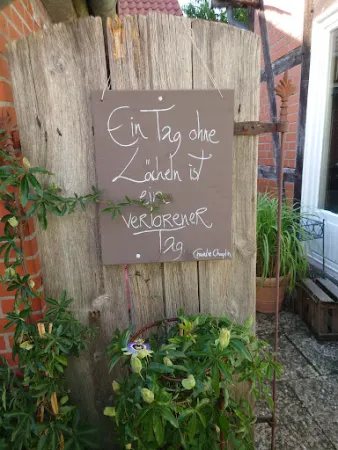 Ein Tag ohne
Lächeln ist
ein
verlorener
Tag
Charlie Chaplin